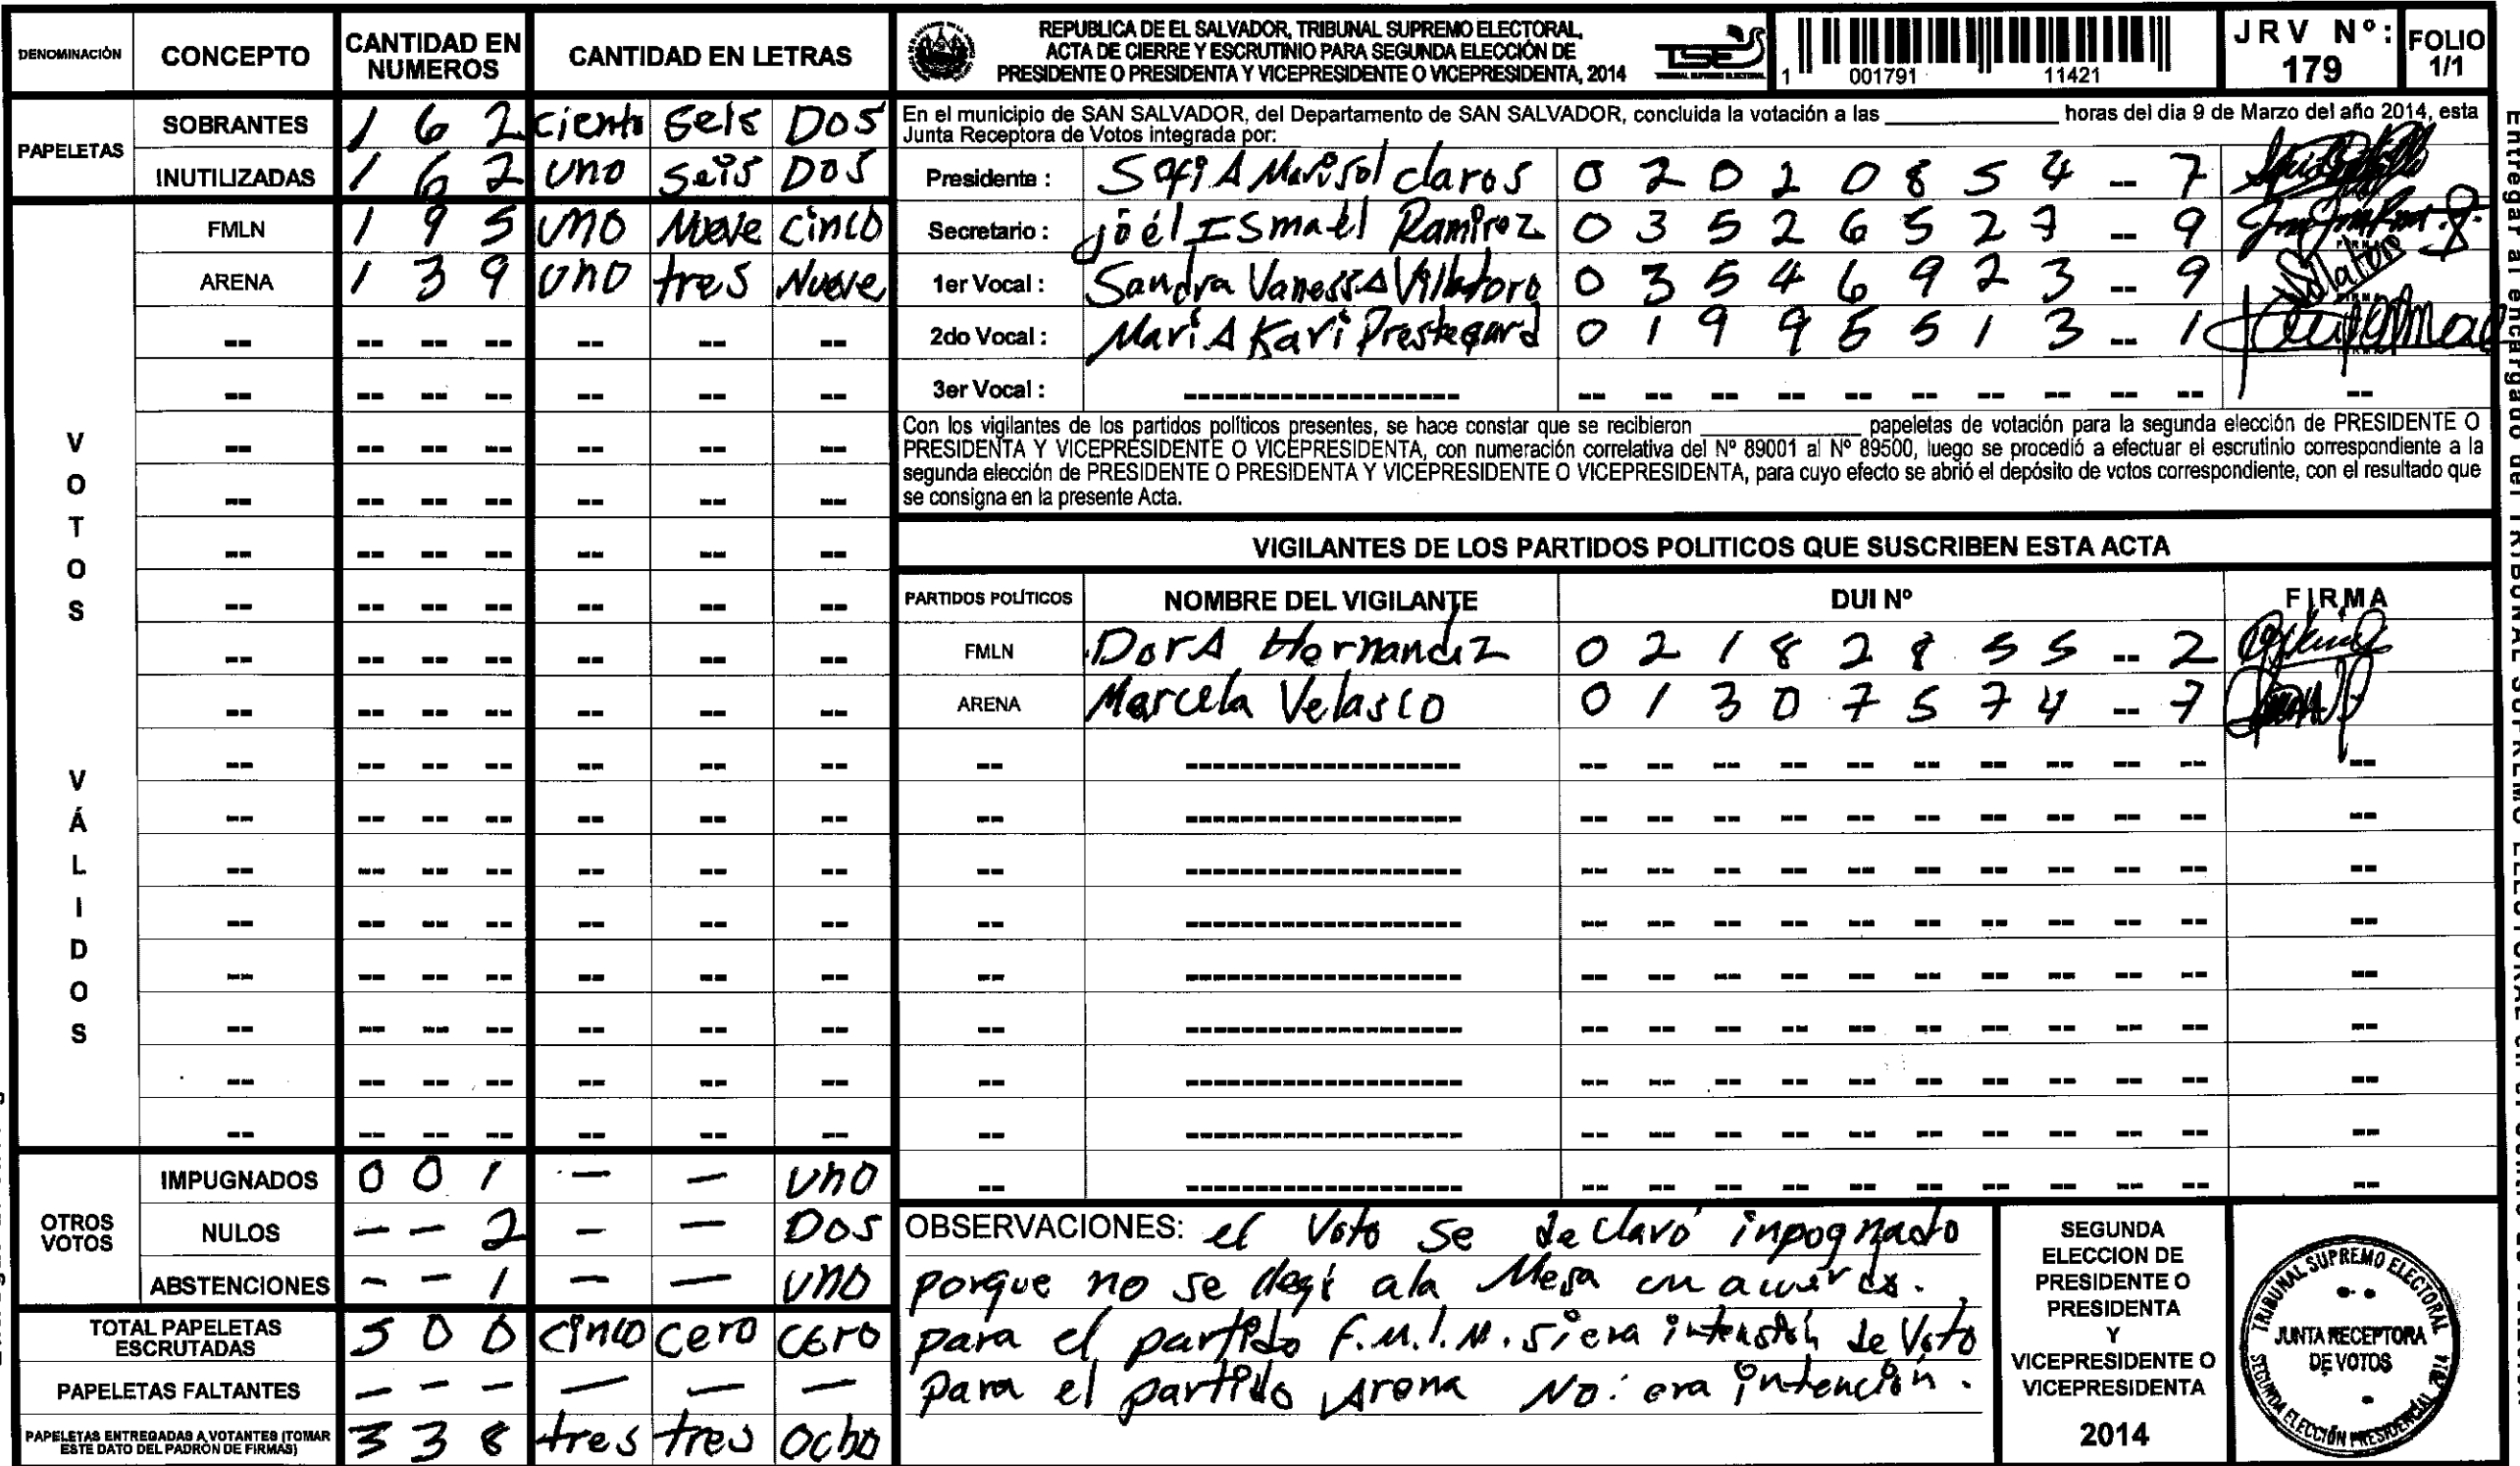 DENOMINACIÓN CONCEPTO CANTIDAD EN NUMEROS CANTIDAD EN LETRAS
PAPELETAS
SOBRANTES 1 6 2 ciento seis Dos
INUTILIZADAS 1 6 2 uno seis Dos
VOTOS VÁLIDOS
FMLN 1 9 5 uno Nueve cinco
ARENA 1 3 9 uno tres Nueve
OTROS VOTOS
IMPUGNADOS 0 0 1 — — uno
NULOS — — 2 — — Dos
ABSTENCIONES — — 1 — — uno
TOTAL PAPELETAS ESCRUTADAS 5 0 0 cinco cero cero
PAPELETAS FALTANTES — — — — — —
PAPELETAS ENTREGADAS A VOTANTES (TOMAR ESTE DATO DEL PADRÓN DE FIRMAS) 3 3 8 tres tres Ocho
REPUBLICA DE EL SALVADOR, TRIBUNAL SUPREMO ELECTORAL,
ACTA DE CIERRE Y ESCRUTINIO PARA SEGUNDA ELECCIÓN DE
PRESIDENTE O PRESIDENTA Y VICEPRESIDENTE O VICEPRESIDENTA, 2014
TSE
1 001791 11421
JRV Nº: 179
FOLIO 1/1
En el municipio de SAN SALVADOR, del Departamento de SAN SALVADOR, concluida la votación a las ____ horas del dia 9 de Marzo del año 2014, esta
Junta Receptora de Votos integrada por:
Presidente : SofiA Marisol claros 0 2 0 2 0 8 5 4 -- 7
Secretario : joél ISmaél Ramirez 0 3 5 2 6 5 2 7 -- 9
1er Vocal : Sandra VanessA Villatoro 0 3 5 4 6 9 2 3 -- 9
2do Vocal : MariA Kari Prestegard 0 1 9 9 5 5 1 3 -- 1
3er Vocal :
Con los vigilantes de los partidos políticos presentes, se hace constar que se recibieron ____ papeletas de votación para la segunda elección de PRESIDENTE O
PRESIDENTA Y VICEPRESIDENTE O VICEPRESIDENTA, con numeración correlativa del Nº 89001 al Nº 89500, luego se procedió a efectuar el escrutinio correspondiente a la
segunda elección de PRESIDENTE O PRESIDENTA Y VICEPRESIDENTE O VICEPRESIDENTA, para cuyo efecto se abrió el depósito de votos correspondiente, con el resultado que
se consigna en la presente Acta.
VIGILANTES DE LOS PARTIDOS POLITICOS QUE SUSCRIBEN ESTA ACTA
PARTIDOS POLÍTICOS NOMBRE DEL VIGILANTE DUI Nº FIRMA
FMLN DorA Hernandez 0 2 1 8 2 8 5 5 -- 2
ARENA Marcela Velasco 0 1 3 0 7 5 7 4 -- 7
OBSERVACIONES: el Voto se declaró inpognado
porque no se llegó a la Mesa en
para el partido F.M.L.N. si era intensión de Voto
para el partido Arena No: era intención.
SEGUNDA
ELECCION DE
PRESIDENTE O
PRESIDENTA
Y
VICEPRESIDENTE O
VICEPRESIDENTA
2014
TRIBUNAL SUPREMO ELECTORAL
JUNTA RECEPTORA
DE VOTOS
SEGUNDA ELECCIÓN PRESIDENCIAL 2014